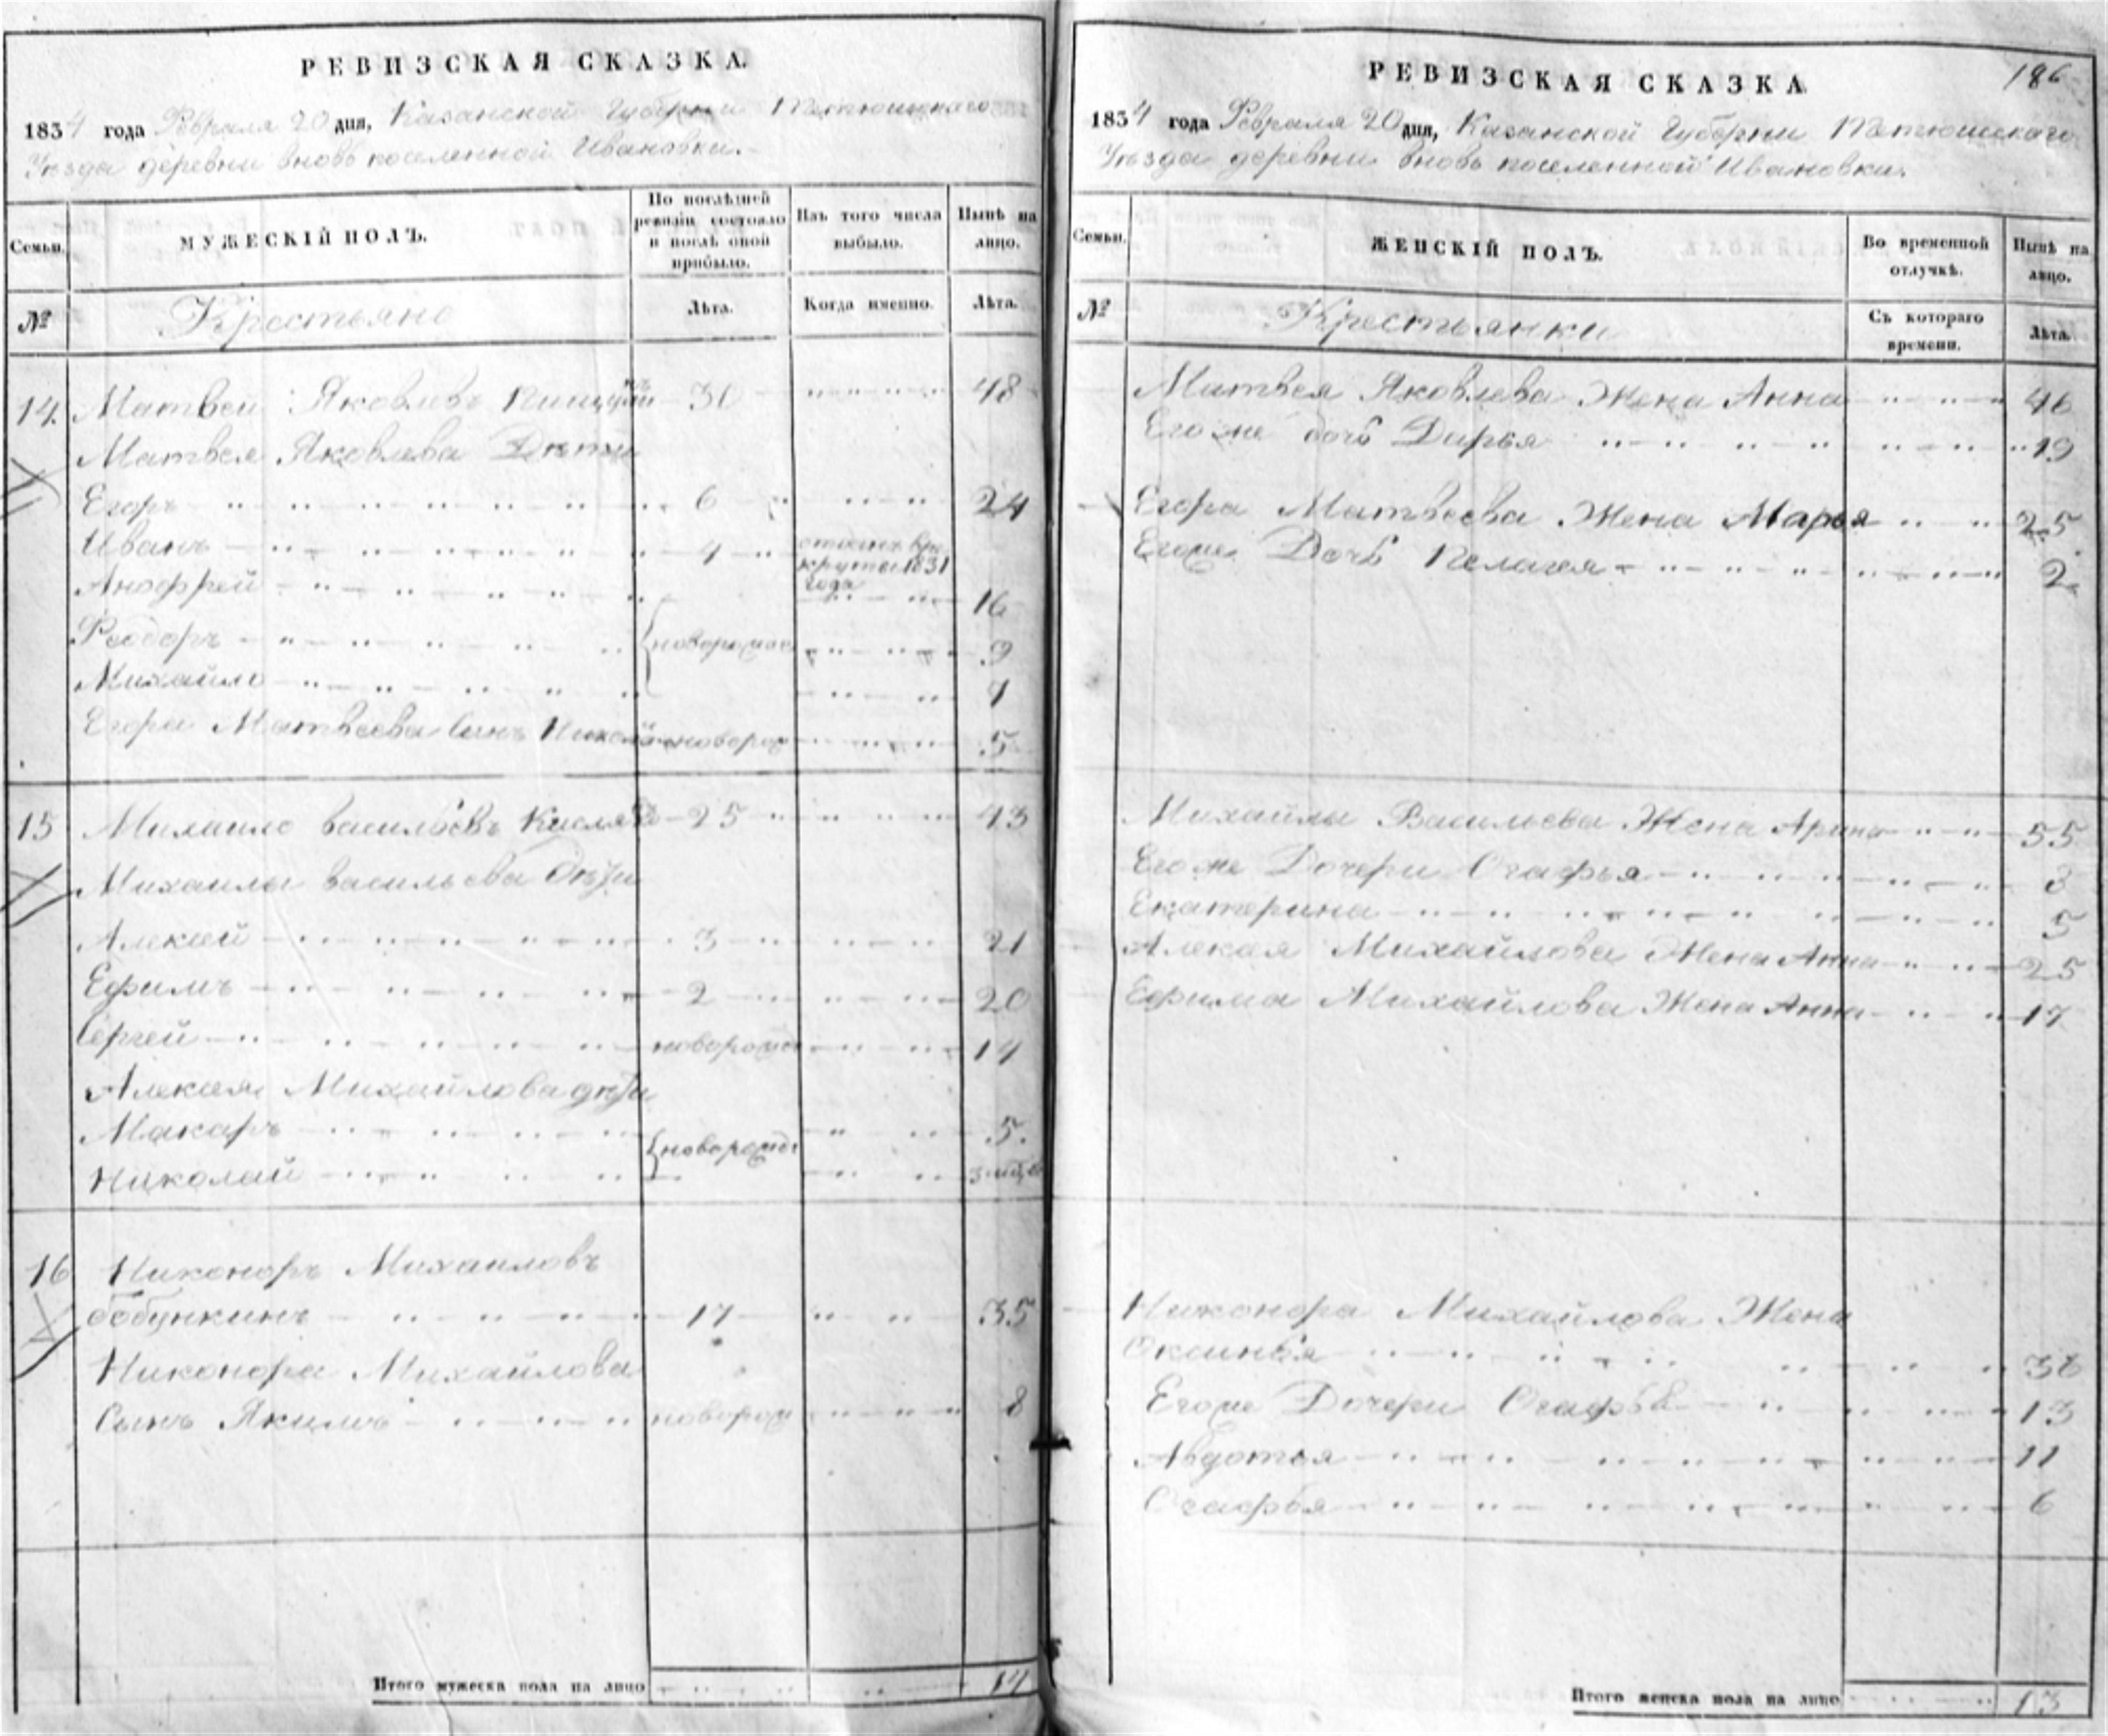 РЕВИЗСКАЯ СКАЗКА.
1834 года Февраля 20 дня, Казанской Губерни Тетюшскаго
Уезда деревни вновь поселенной Ивановки.
Семьи.
МУЖЕСКІЙ ПОЛЪ.
По послѣдней ревизіи состояло и послѣ оной прибыло.
Изъ того числа выбыло.
Нынѣ на лицо.
№
Крестьяне
Лѣта.
Когда именно.
Лѣта.
14. Матвей Яковлевъ 30 48
Матвея Яковлева Дѣти
Егоръ 6 24
Иванъ 4 1831 года
Анофрей 16
Феодоръ новорожд 9
Михайло
Егора Матвеева Сынъ Никол новорож 5
15 Михаило Васильевъ 25 43
Михаилы Васильева Дѣти
Алексей 3 21
Ефимъ 2 20
Сергей новорожд 14
Алексея Михайлова дѣти
Макаръ 5.
новорожд
Николай
16 Никоноръ Михаиловъ
бобункинъ 17 35
Никонора Михайлова
Сынъ Якимъ новорож 8
Итого мужеска пола на лицо 14
186
РЕВИЗСКАЯ СКАЗКА
1834 года Февраля 20 дня, Казанской Губерни Тетюшскаго
Уезда деревни вновь поселенной Ивановки.
Семьи.
ЖЕНСКІЙ ПОЛЪ.
Во временной отлучкѣ.
Нынѣ на лицо.
№
Крестьянки
Съ котораго времени.
Лѣта.
Матвея Яковлева Жена Анна 46
Его же дочь Дарья 19
Егора Матвеева Жена Марья 25
Егоже Дочь Пелагея 2
Михайлы Васильева Жена Арина 55
Его же Дочери Огафья 8
Екатерина 5
Алексея Михайлова Жена Анна 25
Ефима Михайлова Жена Анна 17
Никонора Михайлова Жена
Оксинья 36
Егоже Дочери Огафья 13
Авдотья 11
Огафья 6
Итого женска пола на лицо 13